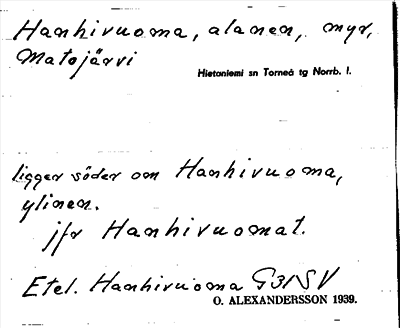 Hanhivuoma, alanen, myr,
Matojärvi
Hietaniemi sn Torneå tg Norrb. l.
ligger söder om Hanhivuoma,
ylinen.
jfr Hanhivuomat.
Etel. Hanhivuoma G31SV
O. ALEXANDERSSON 1939.